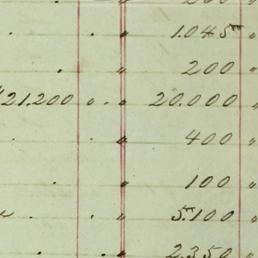 " 1.045 "
. " 200 "
"21.200 " . " 20.000 "
. " 400 "
. " 100 "
. . " 5.100 "
. . " 2.350 "